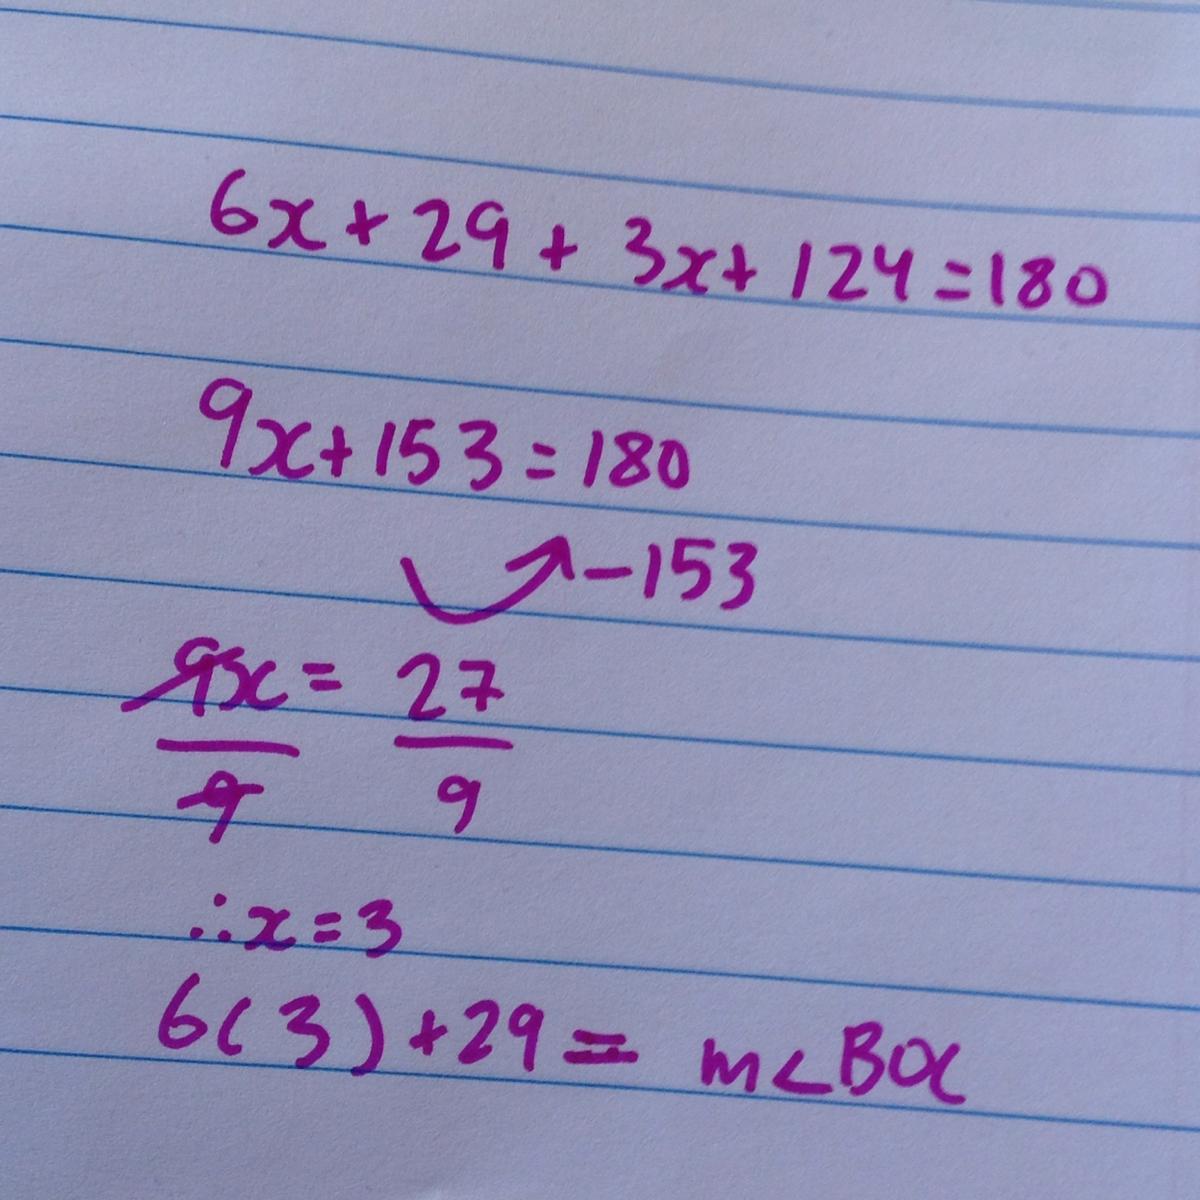 6x + 29 + 3x + 124 = 180
9x + 153 = 180
-153
9x = 27
9 9
∴ x = 3
6(3) + 29 = m<BOC